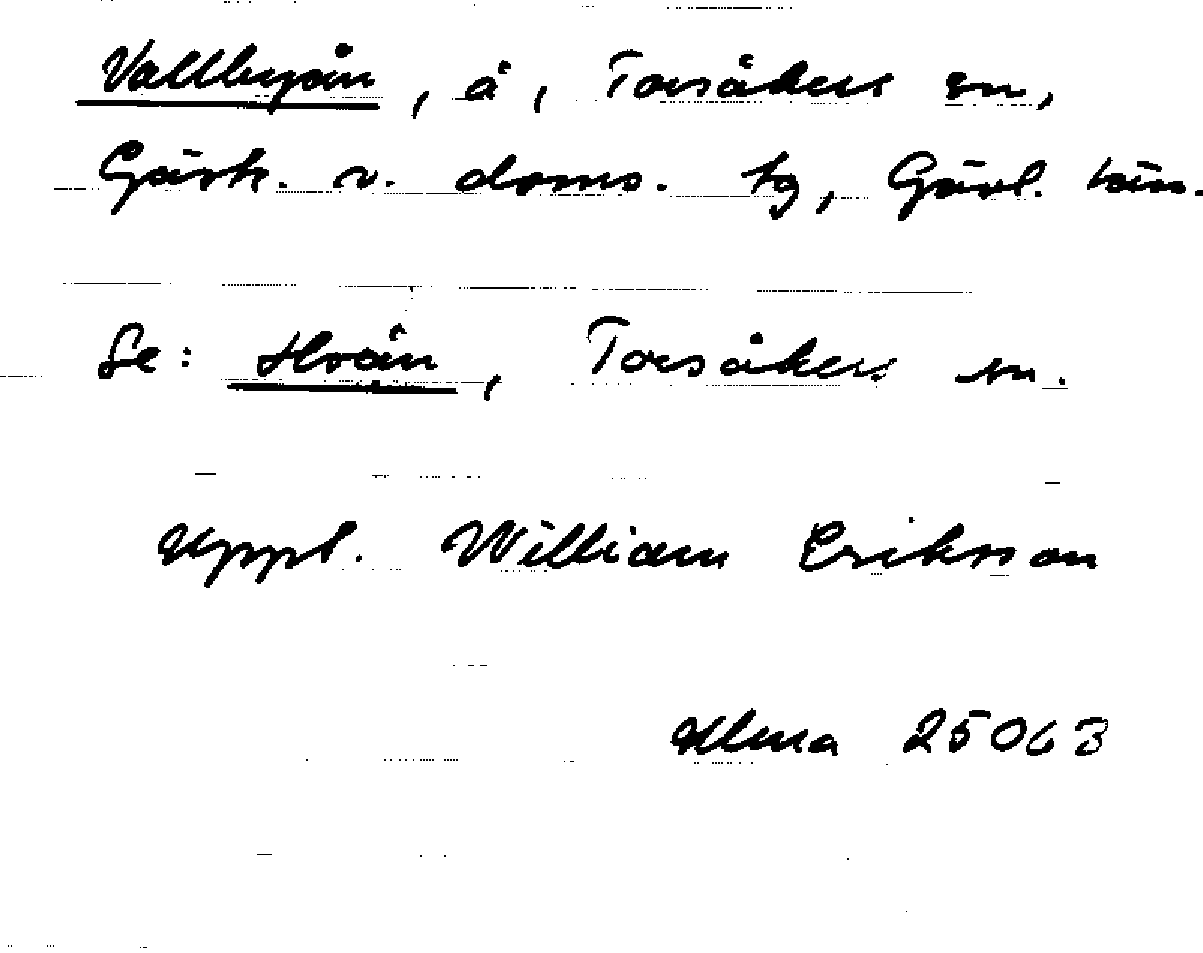 Vallbyån, å, Torsåkers sn,
Gästr. v. doms. tg, Gävl. län.
Se: Hoån, Torsåkers sn.
Uppl. William Eriksson
Ulma 25063